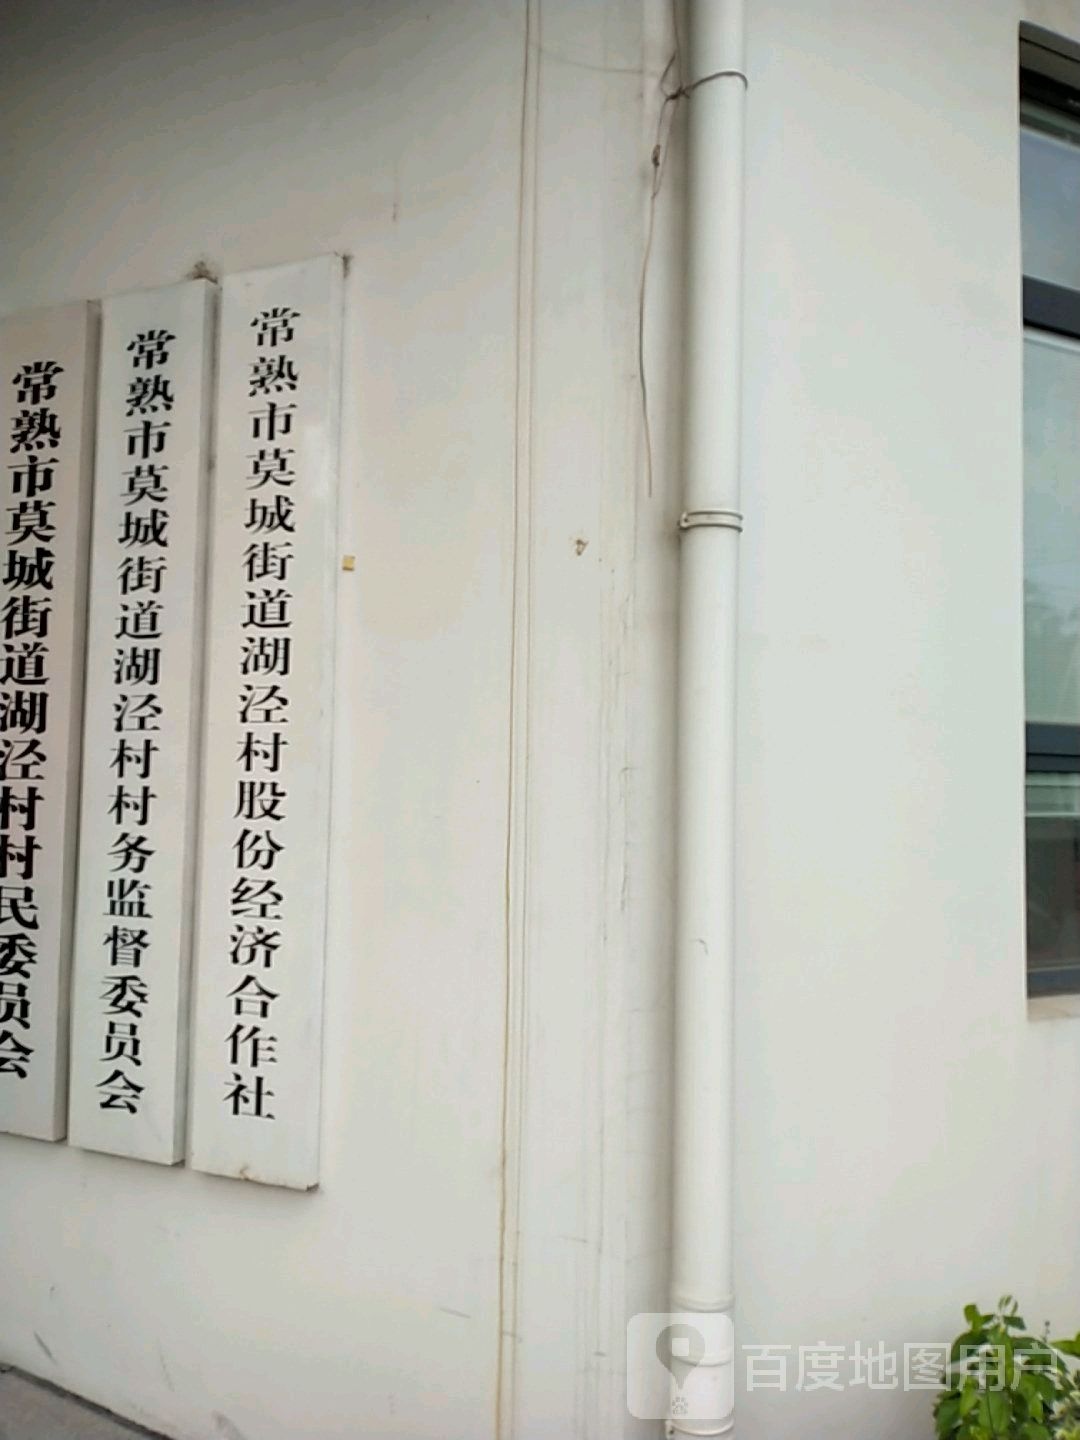 常熟市莫城街道湖泾村村民委员会
常熟市莫城街道湖泾村村务监督委员会
常熟市莫城街道湖泾村股份经济合作社
百度地图用户